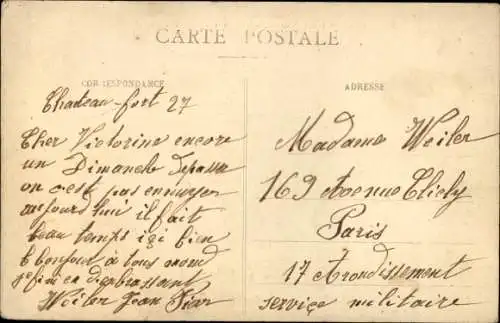 CARTE POSTALE
CORRESPONDANCE
ADRESSE
Chateau-fort 27
Cher Victorine encore
un Dimanche de passe
on c'est pas ennuyer
aujourd'hui il fait
beau temps ici bien
le bonjour à tous
en
Weiler Jean
Madame Weiler
169 Avenue Clichy
Paris
17 Arondissement
service militaire